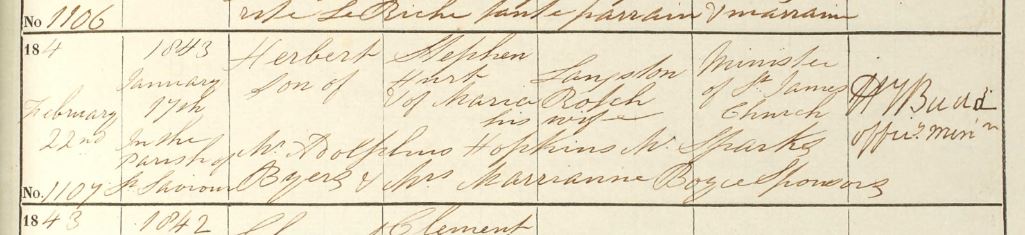 No 1106 rite Le Biche tante parrain & marraine
184 1843 Herbert Stephen Minister
January son of Hurt Langston of St. James
February 17th & of Maria Rolch Church H Y Budd
22nd In the his wife offic. min
Parish of Mr. Adolphus Hopkins Mr. Sparks
No. 1107 St. Saviour Byers & Mrs Marrianne Boyce Sponsors
1843 1842 Clement